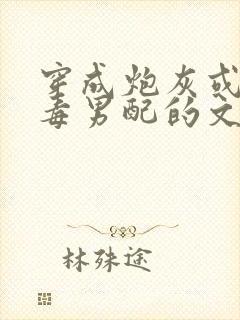 穿成炮灰或
毒男配的文
林殊途